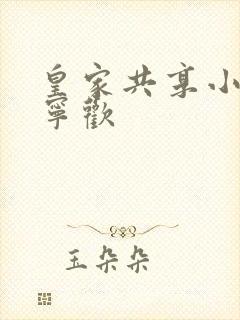 皇家共享小
寧歡
玉朵朵